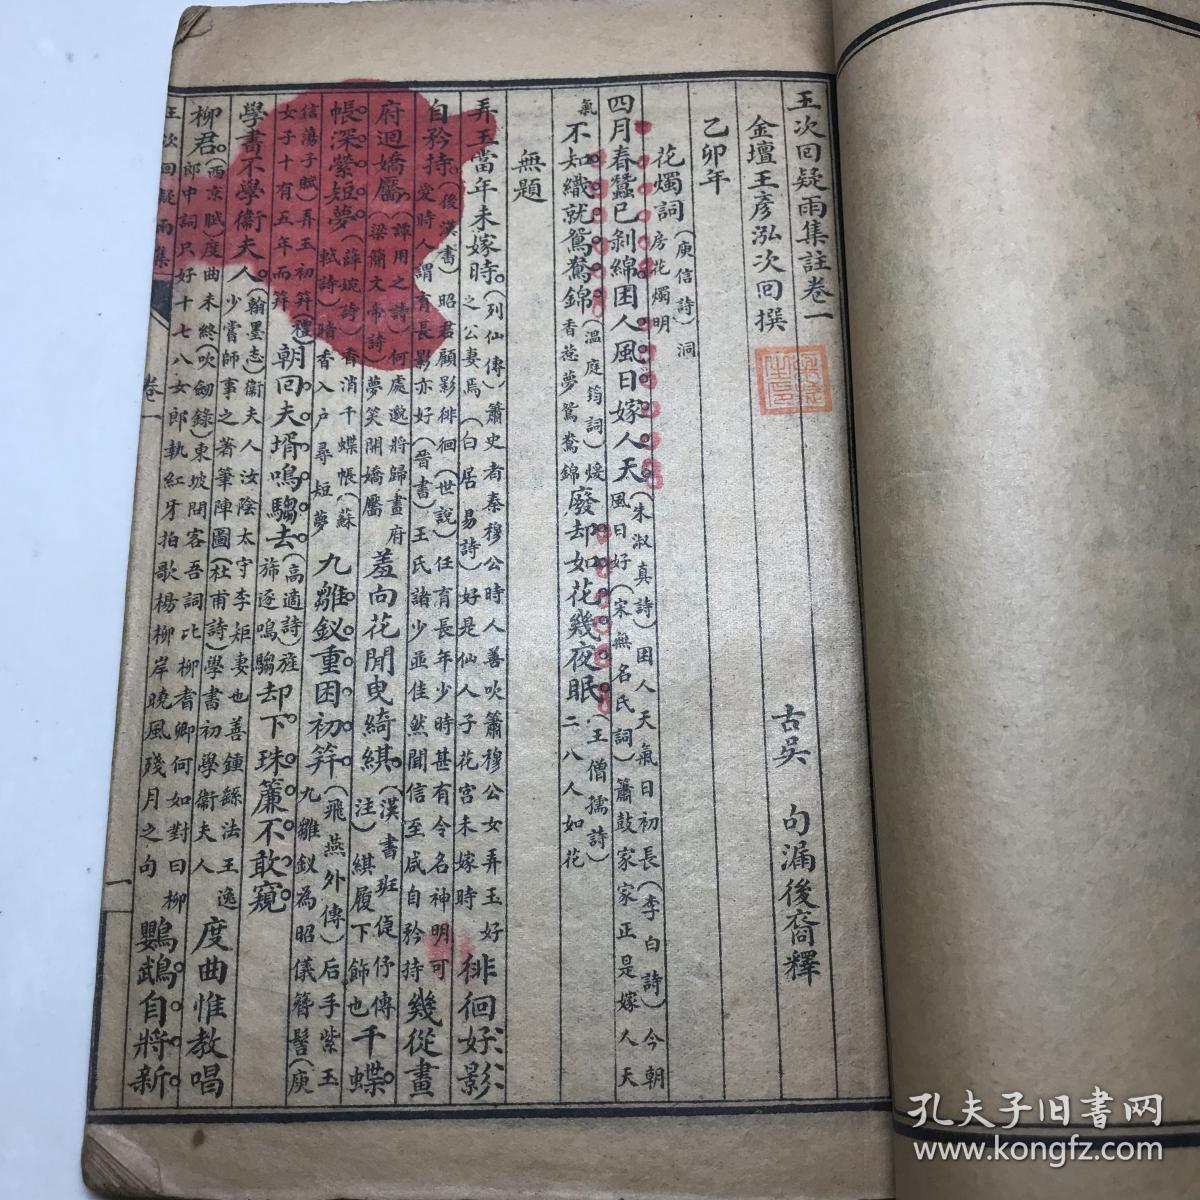 王次回疑雨集註卷一
金壇王彥泓次回撰 古吳 句漏後裔釋
乙卯年
花燭詞(庾信詩)洞房花燭明
四月春蠶已剝綿困人風日嫁人天(朱淑真詩)困人天氣日初長(李白詩)今朝風日好(宋無名氏詞)簫鼓家家正是嫁人天
氣不如織就鴛鴦錦(溫庭筠詞)煖香惹夢鴛鴦錦廢却如花幾夜眠(王僧孺詩)二八人如花
無題
弄玉當年未嫁時(列仙傳)簫史者秦穆公時人善吹簫穆公女弄玉好之公妻焉(白居易詩)好是仙人子花宮未嫁時徘徊好影
自矜持(後漢書)昭君顧影徘徊(世說)任育長年少時甚有令名神明可愛時人謂育長影亦好(晉書)王氏諸少並佳然聞信至咸自矜持幾從畫
府迴嬌靨(譚用之詩)何處邀將歸畫府(梁簡文帝詩)夢笑開嬌靨羞向花閒曳綺綦(漢書班倢伃傳注)綦履下飾也千蝶
帳深縈短夢(薛婉詩)香消千蝶帳(蘇軾詩)暗香入戶尋短夢九雛釵重困初笄(飛燕外傳)后手紫玉九雛釵為昭儀簪髻(庾
信蕩子賦)弄玉初笄(禮)女子十有五年而笄朝回夫壻鳴騶去(高適詩)旌旆逐鳴騶却下珠簾不敢窺
學書不學衞夫人(翰墨志)衞夫人汝陰太守李矩妻也善鍾繇法王逸少嘗師事之著筆陣圖(杜甫詩)學書初學衞夫人度曲惟教唱
柳君(西京賦)度曲未終(吹劒錄)東坡問客吾詞比柳耆卿何如對曰柳郎中詞只好十七八女郎執紅牙拍歌楊柳岸曉風殘月之句鸚鵡自將新
王次回疑雨集 卷一 一
孔夫子旧书网
www.kongfz.com